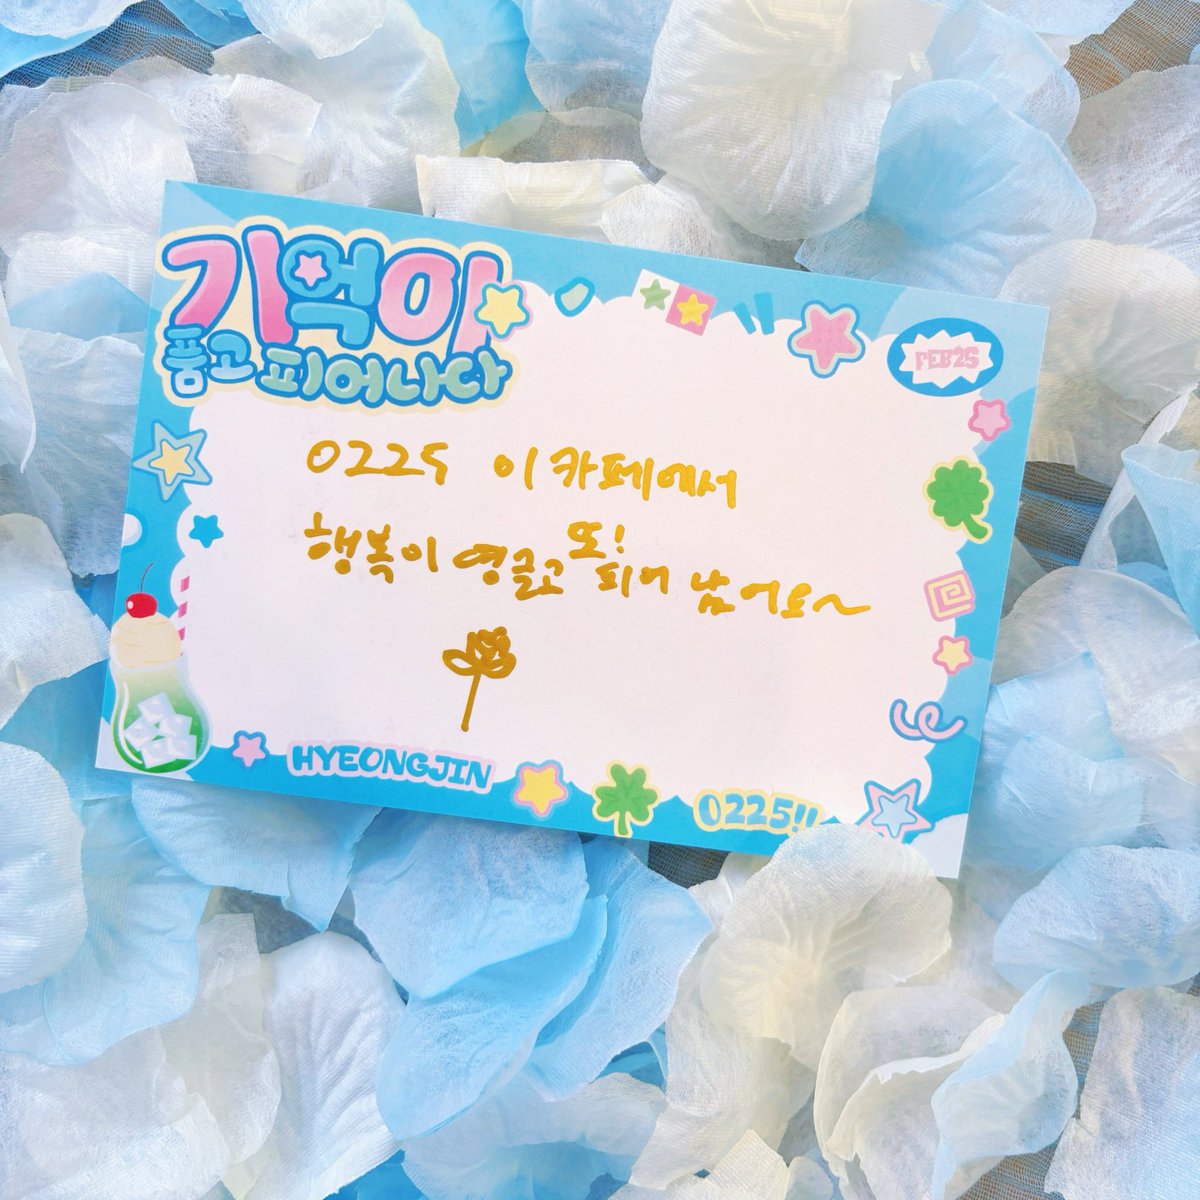 기억이
품고 피어나다
FEB25
0225 이 카페에서
또!
행복이 영글고 피어 남어요~
HYEONGJIN
0225!!